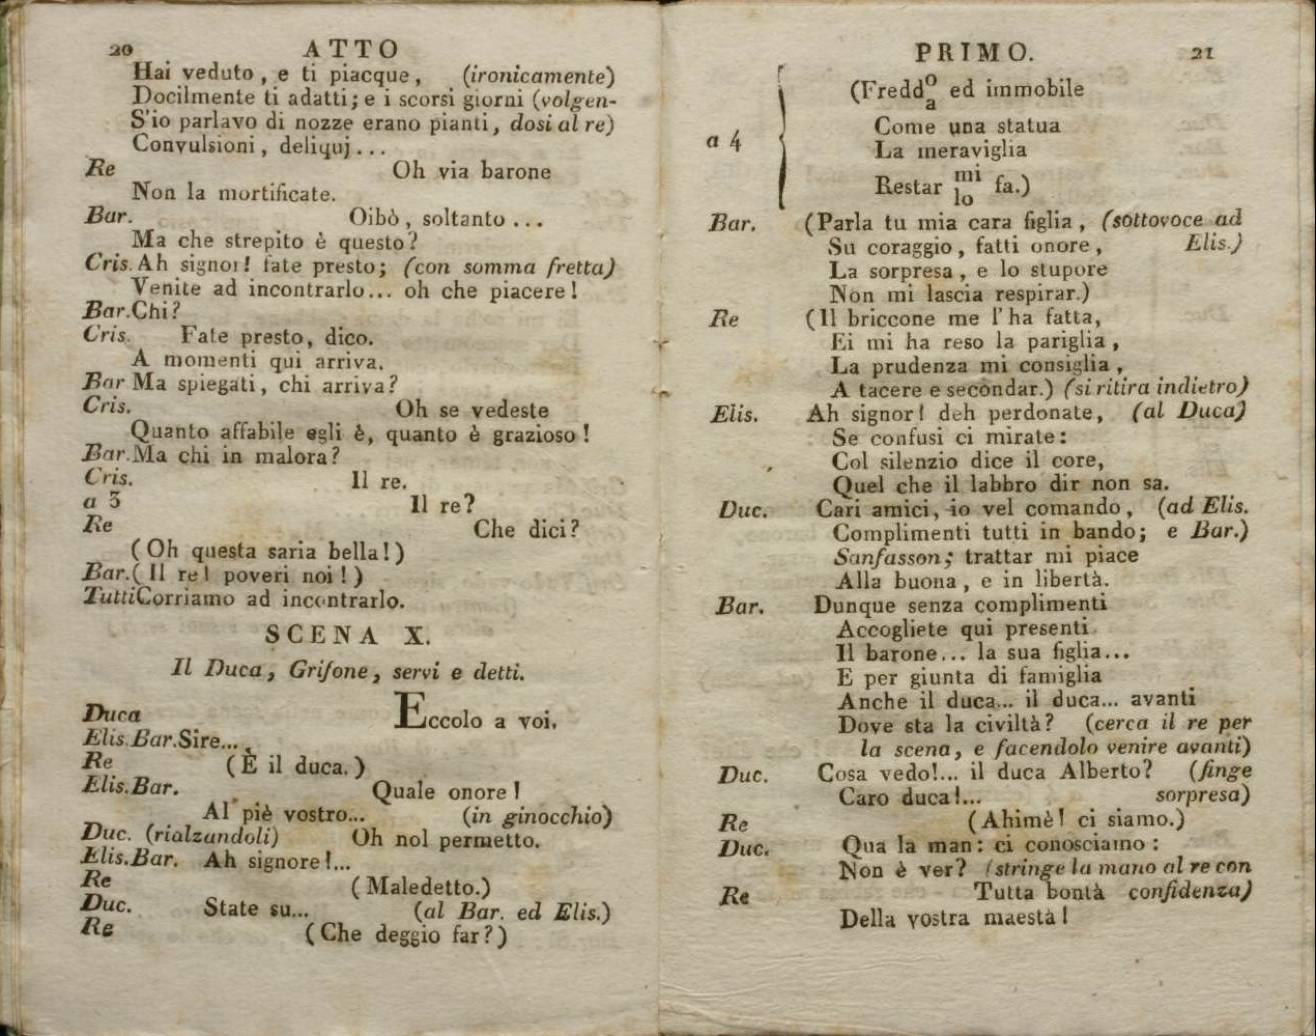 20 ATTO
Hai veduto, e ti piacque, (ironicamente)
Docilmente ti adatti; e i scorsi giorni (volgen-
S'io parlavo di nozze erano pianti, dosi al re)
Convulsioni, deliquj...
Re Oh via barone
Non la mortificate.
Bar. Oibò, soltanto...
Ma che strepito è questo?
Cris. Ah signor! fate presto; (con somma fretta)
Venite ad incontrarlo... oh che piacere!
Bar. Chi?
Cris. Fate presto, dico.
A momenti qui arriva.
Bar Ma spiegati, chi arriva?
Cris. Oh se vedeste
Quanto affabile egli è, quanto è grazioso!
Bar. Ma chi in malora?
Cris. Il re.
a 3 Il re?
Re Che dici?
(Oh questa saria bella!)
Bar. (Il re! poveri noi!)
Tutti Corriamo ad incontrarlo.
SCENA X.
Il Duca, Grifone, servi e detti.
Duca Eccolo a voi.
Elis. Bar. Sire...
Re (È il duca.)
Elis. Bar. Quale onore!
Al piè vostro... (in ginocchio)
Duc. (rialzandoli) Oh nol permetto.
Elis. Bar. Ah signore!...
Re (Maledetto.)
Duc. State su... (al Bar. ed Elis.)
Re (Che deggio far?)
PRIMO. 21
a 4
(Freddo/a ed immobile
Come una statua
La meraviglia
Restar mi/lo fa.)
Bar. (Parla tu mia cara figlia, (sottovoce ad
Su coraggio, fatti onore, Elis.)
La sorpresa, e lo stupore
Non mi lascia respirar.)
Re (Il briccone me l'ha fatta,
Ei mi ha reso la pariglia,
La prudenza mi consiglia,
A tacere e secondar.) (si ritira indietro)
Elis. Ah signor! deh perdonate, (al Duca)
Se confusi ci mirate:
Col silenzio dice il core,
Quel che il labbro dir non sa.
Duc. Cari amici, io vel comando, (ad Elis.
Complimenti tutti in bando; e Bar.)
Sanfasson; trattar mi piace
Alla buona, e in libertà.
Bar. Dunque senza complimenti
Accogliete qui presenti
Il barone... la sua figlia...
E per giunta di famiglia
Anche il duca... il duca... avanti
Dove sta la civiltà? (cerca il re per
la scena, e facendolo venire avanti)
Duc. Cosa vedo!... il duca Alberto? (finge
Caro duca!... sorpresa)
Re (Ahimè! ci siamo.)
Duc. Qua la man: ci conosciamo:
Non è ver? (stringe la mano al re con
Re Tutta bontà confidenza)
Della vostra maestà!